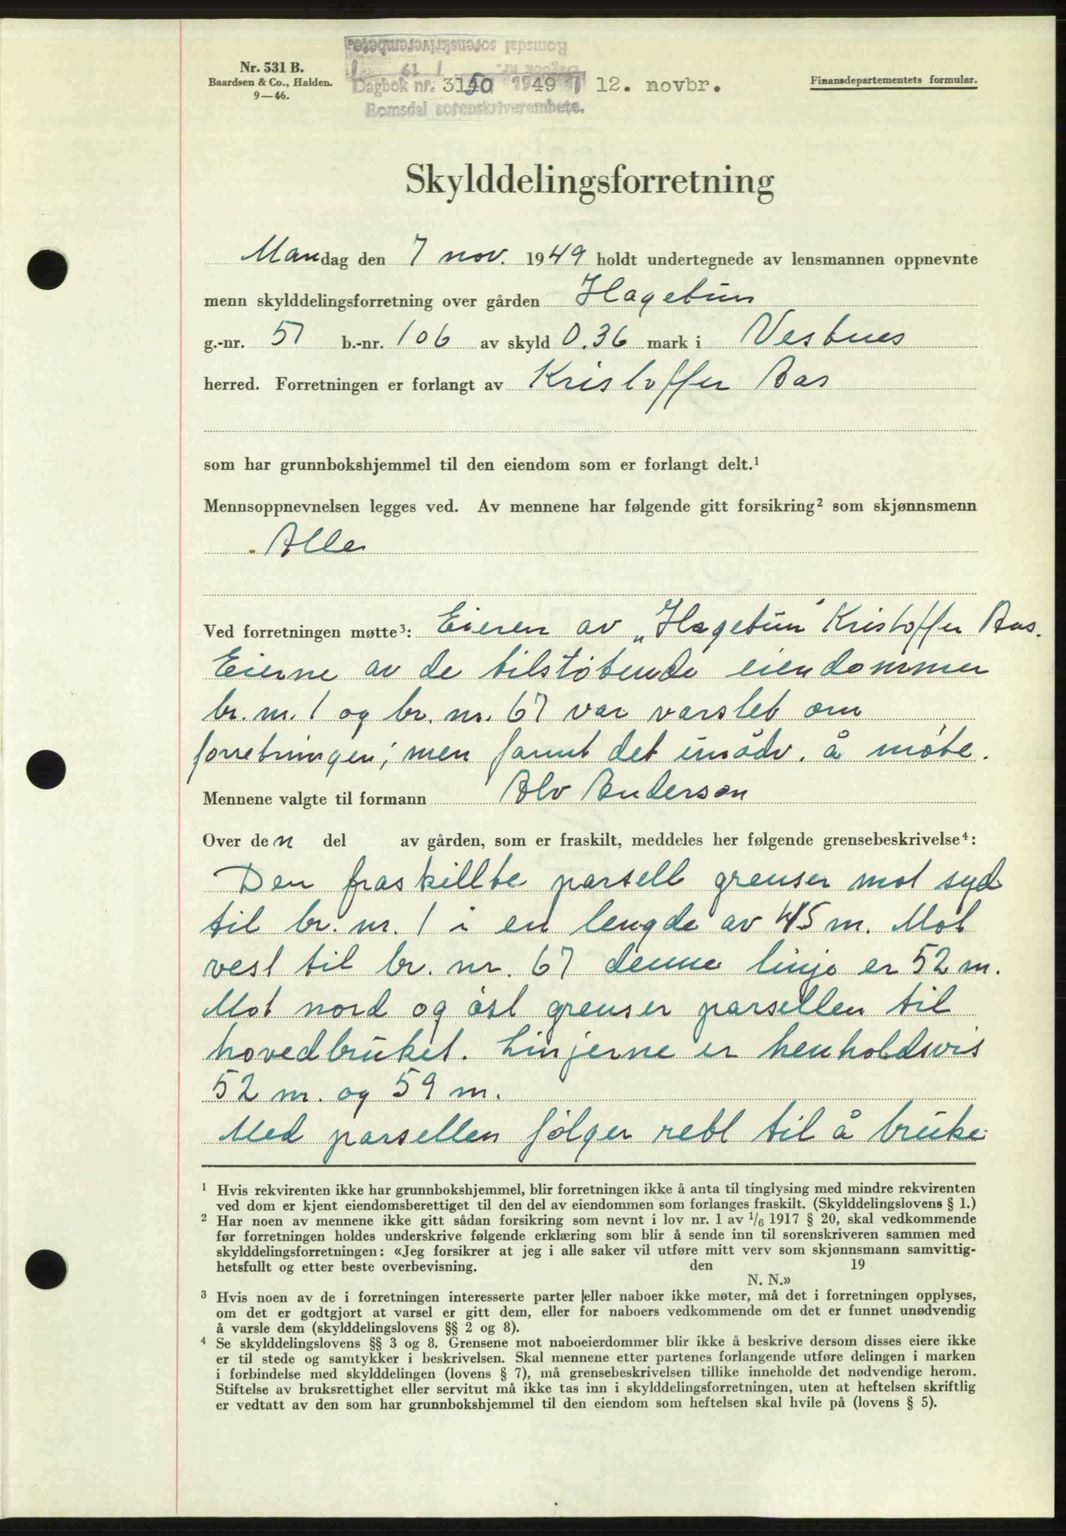 Nr. 531 B.
Baardsen & Co., Halden.
9—46.
Romsdal sorenskriverembete.
Dagbok nr. 3150 1949 12. novbr.
Romsdal sorenskriverembete.
Finansdepartementets formular.
Skylddelingsforretning
Mandag den 7 nov. 1949 holdt undertegnede av lensmannen oppnevnte
menn skylddelingsforretning over gården Hagebun
g.-nr. 51 b.-nr. 106 av skyld 0.36 mark i Vestnes
herred. Forretningen er forlangt av Kristoffer Aas
som har grunnbokshjemmel til den eiendom som er forlangt delt.¹
Mennsoppnevnelsen legges ved. Av mennene har følgende gitt forsikring² som skjønnsmenn
Alle
Ved forretningen møtte³: Eieren av „Hagebun" Kristoffer Aas.
Eierne av de tilstøtende eiendommer
br. nr. 1 og br. nr. 67 var varslet om
forretningen; men fannt det unødv. å møte.
Mennene valgte til formann Alv Anderson
Over den del av gården, som er fraskilt, meddeles her følgende grensebeskrivelse⁴:
Den fraskillte parsell grenser mot syd
til br. nr. 1 i en lengde av 45 m. Mot
vest til br. nr. 67 denne linje er 52 m.
Mot nord og øst grenser parsellen til
hovedbruket. Linjerne er henholdsvis
52 m. og 59 m.
Med parsellen følger rett til å bruke
¹ Hvis rekvirenten ikke har grunnbokshjemmel, blir forretningen ikke å anta til tinglysing med mindre rekvirenten
ved dom er kjent eiendomsberettiget til den del av eiendommen som forlanges fraskilt. (Skylddelingslovens § 1.)
² Har noen av mennene ikke gitt sådan forsikring som nevnt i lov nr. 1 av 1/6 1917 § 20, skal vedkommende
før forretningen holdes underskrive følgende erklæring som blir å sende inn til sorenskriveren sammen med
skylddelingsforretningen: «Jeg forsikrer at jeg i alle saker vil utføre mitt verv som skjønnsmann samvittig-
hetsfullt og etter beste overbevisning. den 19
N. N.»
³ Hvis noen av de i forretningen interesserte parter eller naboer ikke møter, må det i forretningen opplyses,
om det er godtgjort at varsel er gitt dem, eller for naboers vedkommende om det er funnet unødvendig
å varsle dem (skylddelingslovens §§ 2 og 8).
⁴ Se skylddelingslovens §§ 3 og 8. Grensene mot naboeierdommer blir ikke å beskrive dersom disses eiere ikke
er til stede og samtykker i beskrivelsen. Skal mennene etter partenes forlangende utføre delingen i marken
i forbindelse med skylddelingen (lovens § 7), må grensebeskrivelsen tillike inneholde det nødvendige herom.
Stiftelse av bruksrettighet eller servitut må ikke tas inn i skylddelingsforretningen, uten at heftelsen skriftlig
er vedtatt av den som har grunnbokshjemmel til den eiendom som heftelsen skal hvile på (lovens § 5).